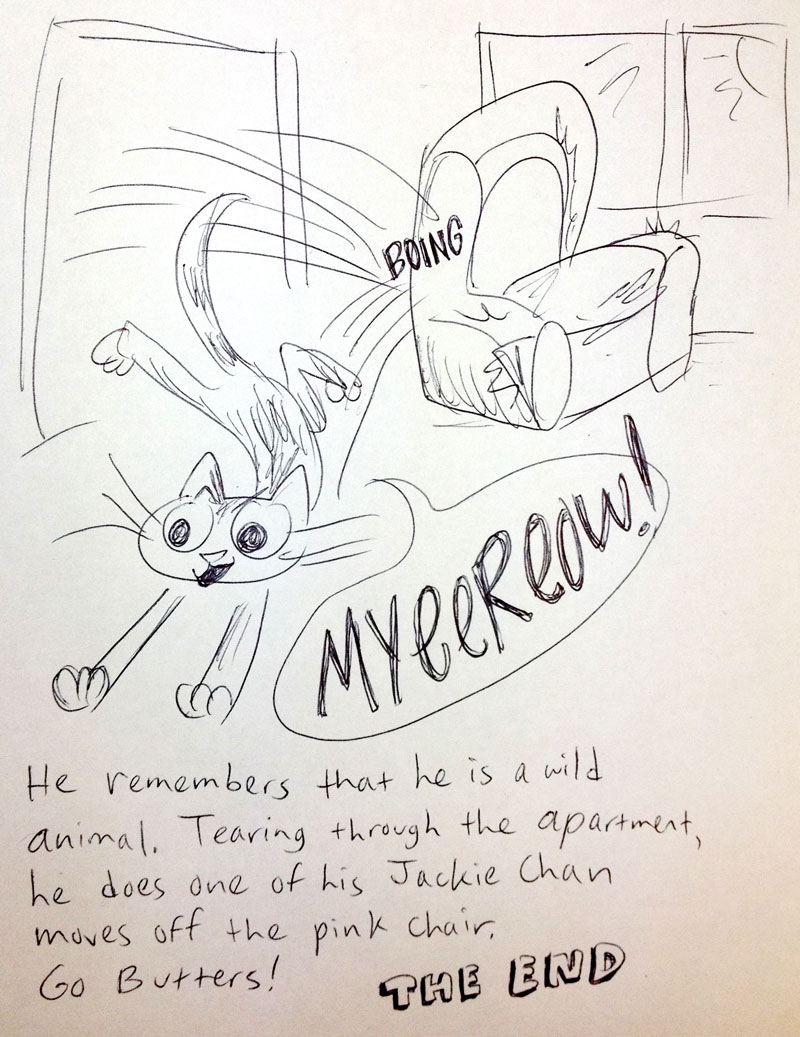 BOING
MYeeReow!
He remembers that he is a wild
animal. Tearing through the apartment,
he does one of his Jackie Chan
moves off the pink chair.
Go Butters!
THE END